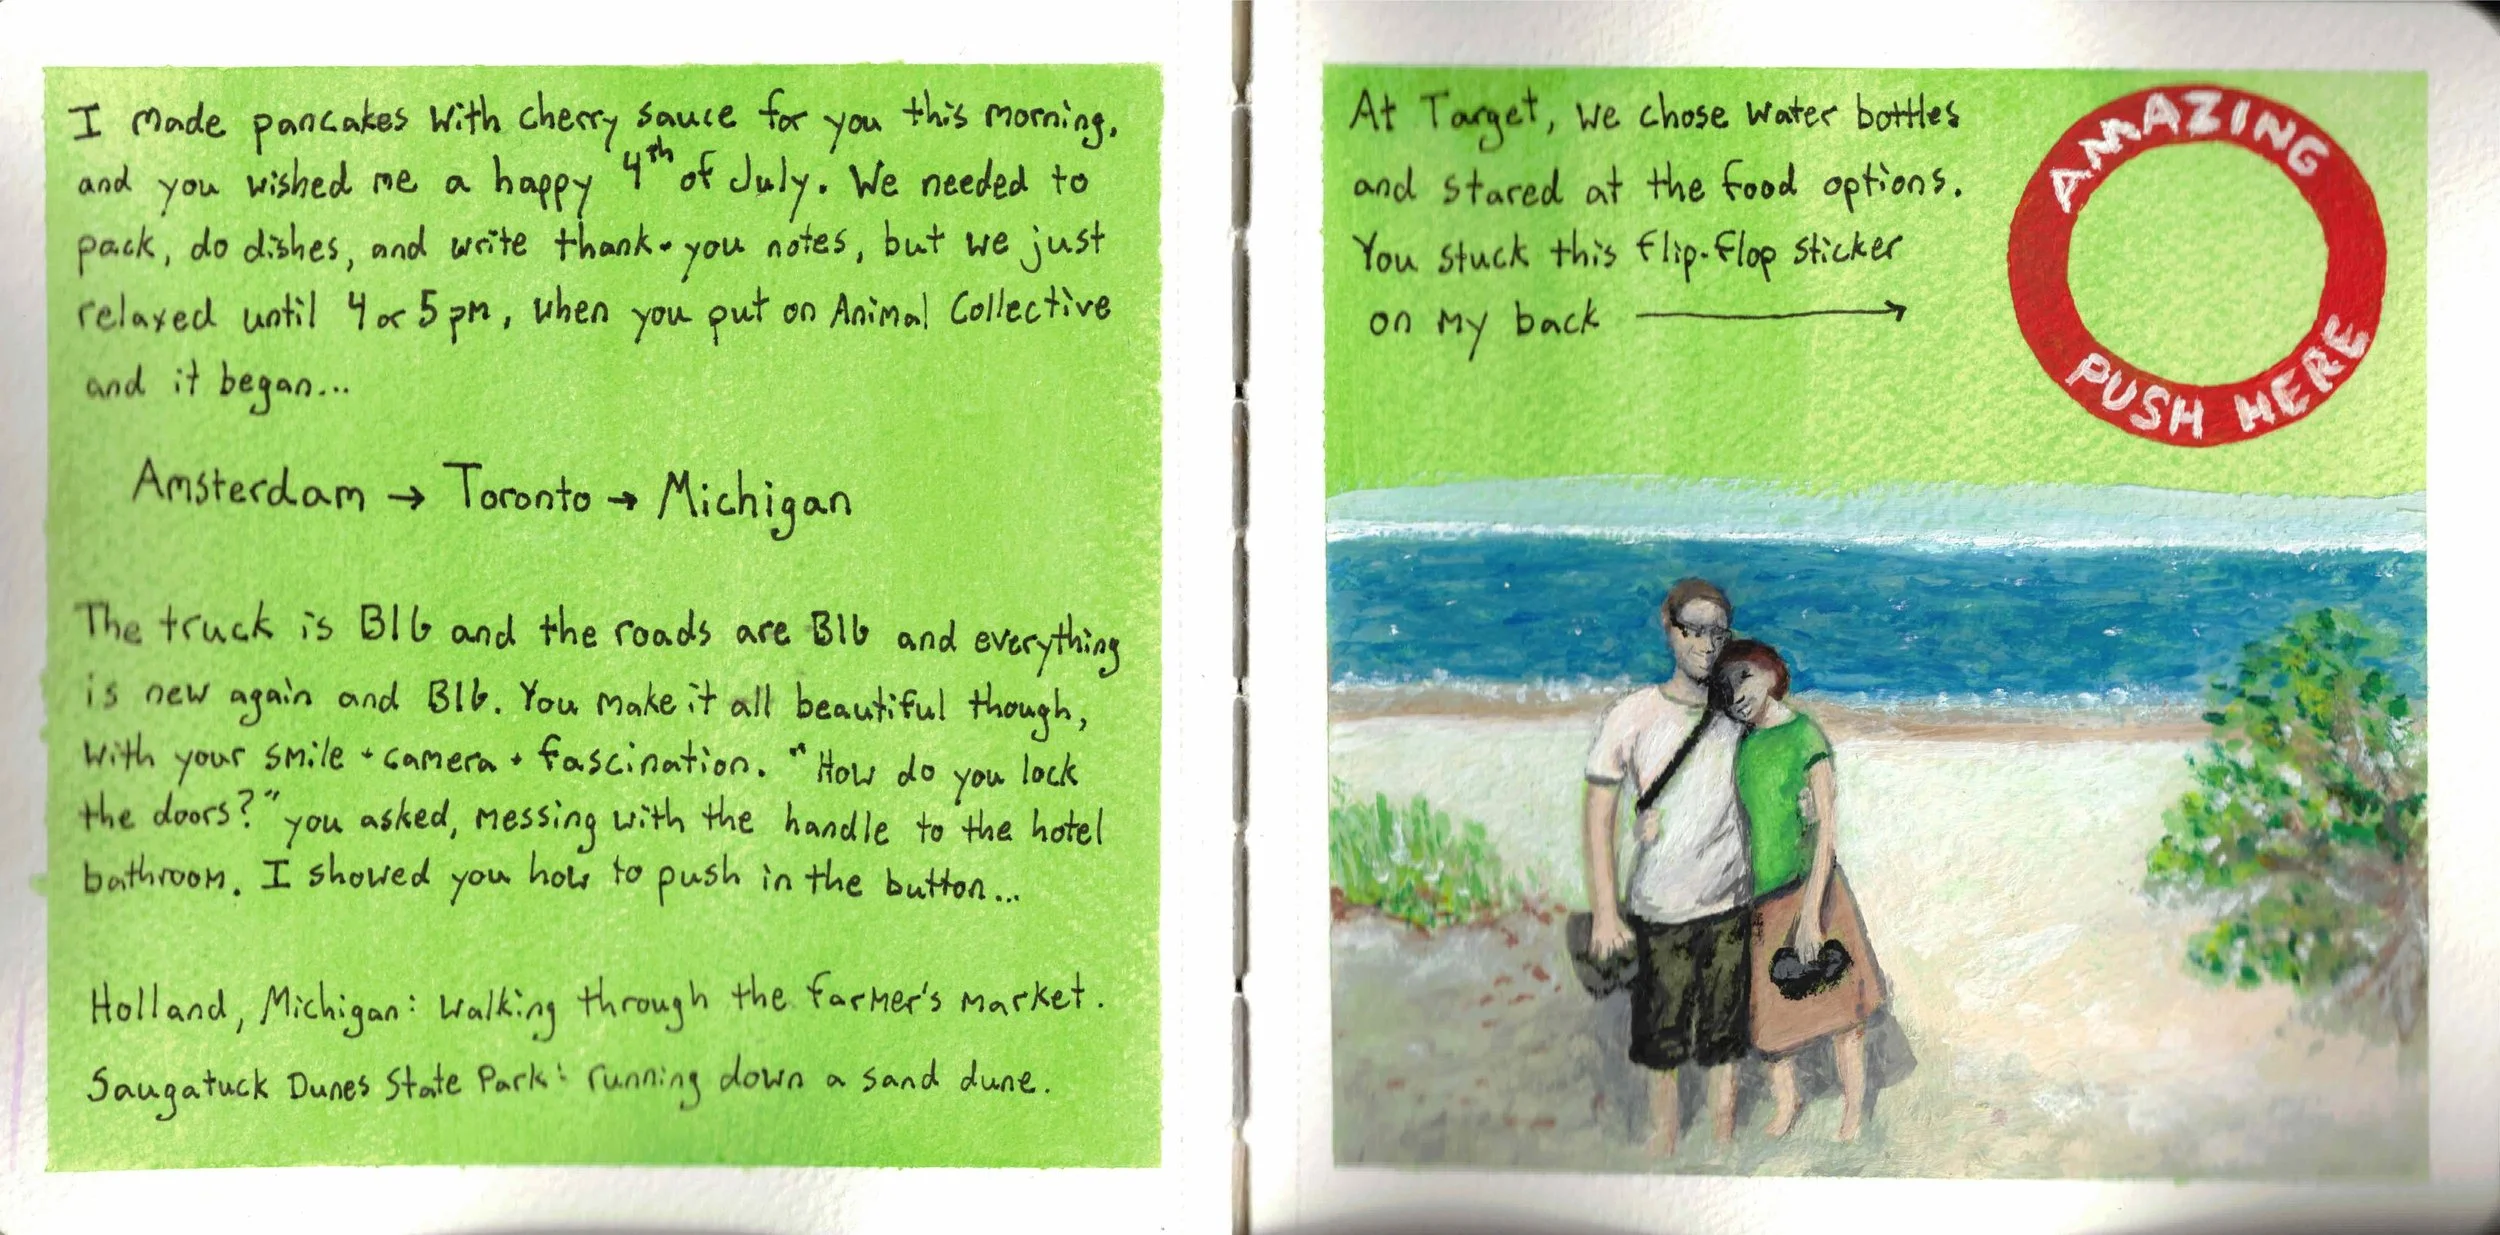 I made pancakes with cherry sauce for you this morning,
and you wished me a happy 4th of July. We needed to
pack, do dishes, and write thank-you notes, but we just
relaxed until 4 or 5 pm, when you put on Animal Collective
and it began...
Amsterdam → Toronto → Michigan
The truck is BIG and the roads are BIG and everything
is new again and BIG. You make it all beautiful though,
with your smile + camera + fascination. "How do you lock
the doors?" you asked, messing with the handle to the hotel
bathroom. I showed you how to push in the button...
Holland, Michigan: walking through the farmer's market.
Saugatuck Dunes State Park: running down a sand dune.
At Target, we chose water bottles
and stared at the food options.
You stuck this flip-flop sticker
on my back →
AMAZING
PUSH HERE